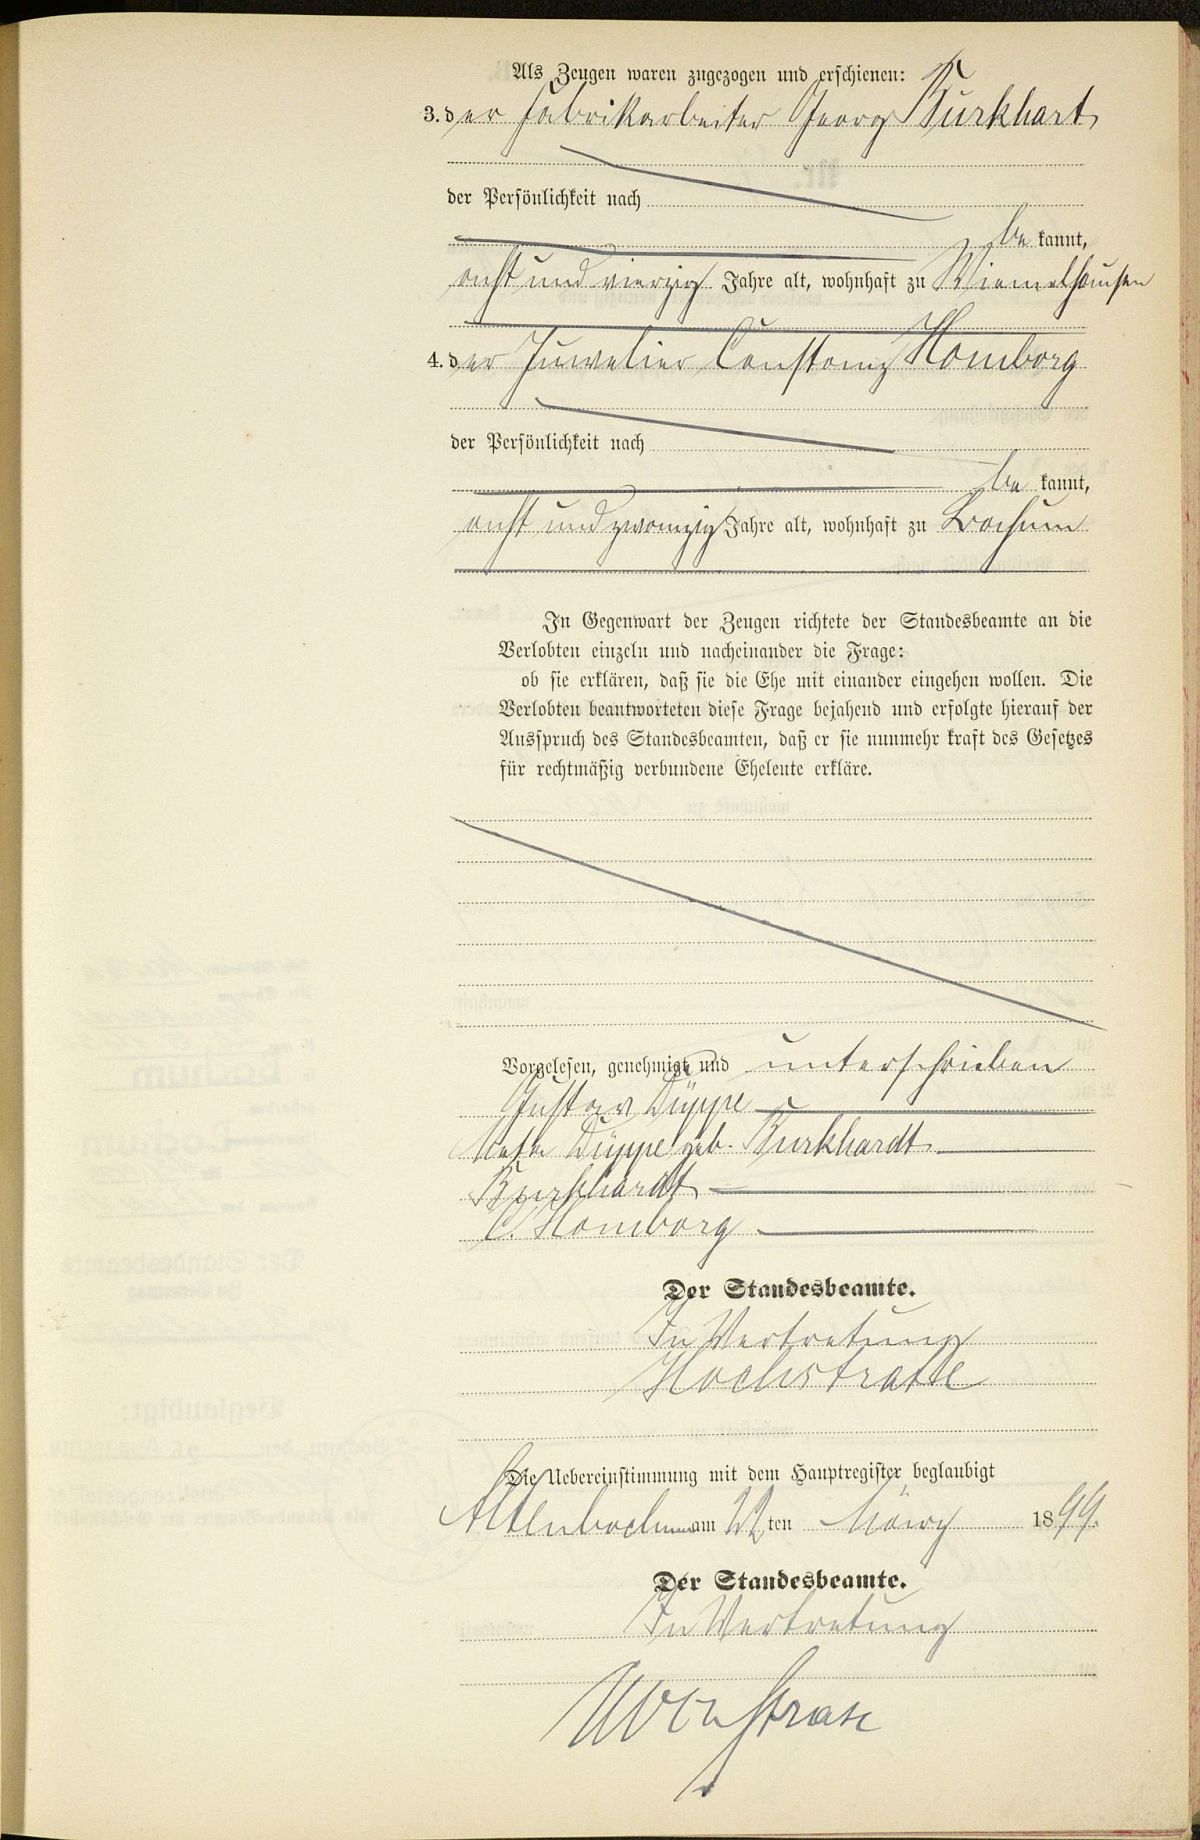 Als Zeugen waren zugezogen und erschienen:
3. der Fabrikarbeiter Georg Burkhart
der Persönlichkeit nach
be kannt,
acht und vierzig Jahre alt, wohnhaft zu Wiemelhausen
4. der Juwelier Constanz Homborg
der Persönlichkeit nach
be kannt,
acht und zwanzig Jahre alt, wohnhaft zu Bochum
In Gegenwart der Zeugen richtete der Standesbeamte an die
Verlobten einzeln und nacheinander die Frage:
ob sie erklären, daß sie die Ehe mit einander eingehen wollen. Die
Verlobten beantworteten diese Frage bejahend und erfolgte hierauf der
Ausspruch des Standesbeamten, daß er sie nunmehr kraft des Gesetzes
für rechtmäßig verbundene Eheleute erkläre.
Vorgelesen, genehmigt und unterschrieben
Gustav Düppe
Düppe geb. Burkhardt
Burkhardt
C. Homborg
Der Standesbeamte.
In Vertretung
Hochstrate
Die Uebereinstimmung mit dem Hauptregister beglaubigt
Altenbochum am 22 ten März 1899.
Der Standesbeamte.
In Vertretung